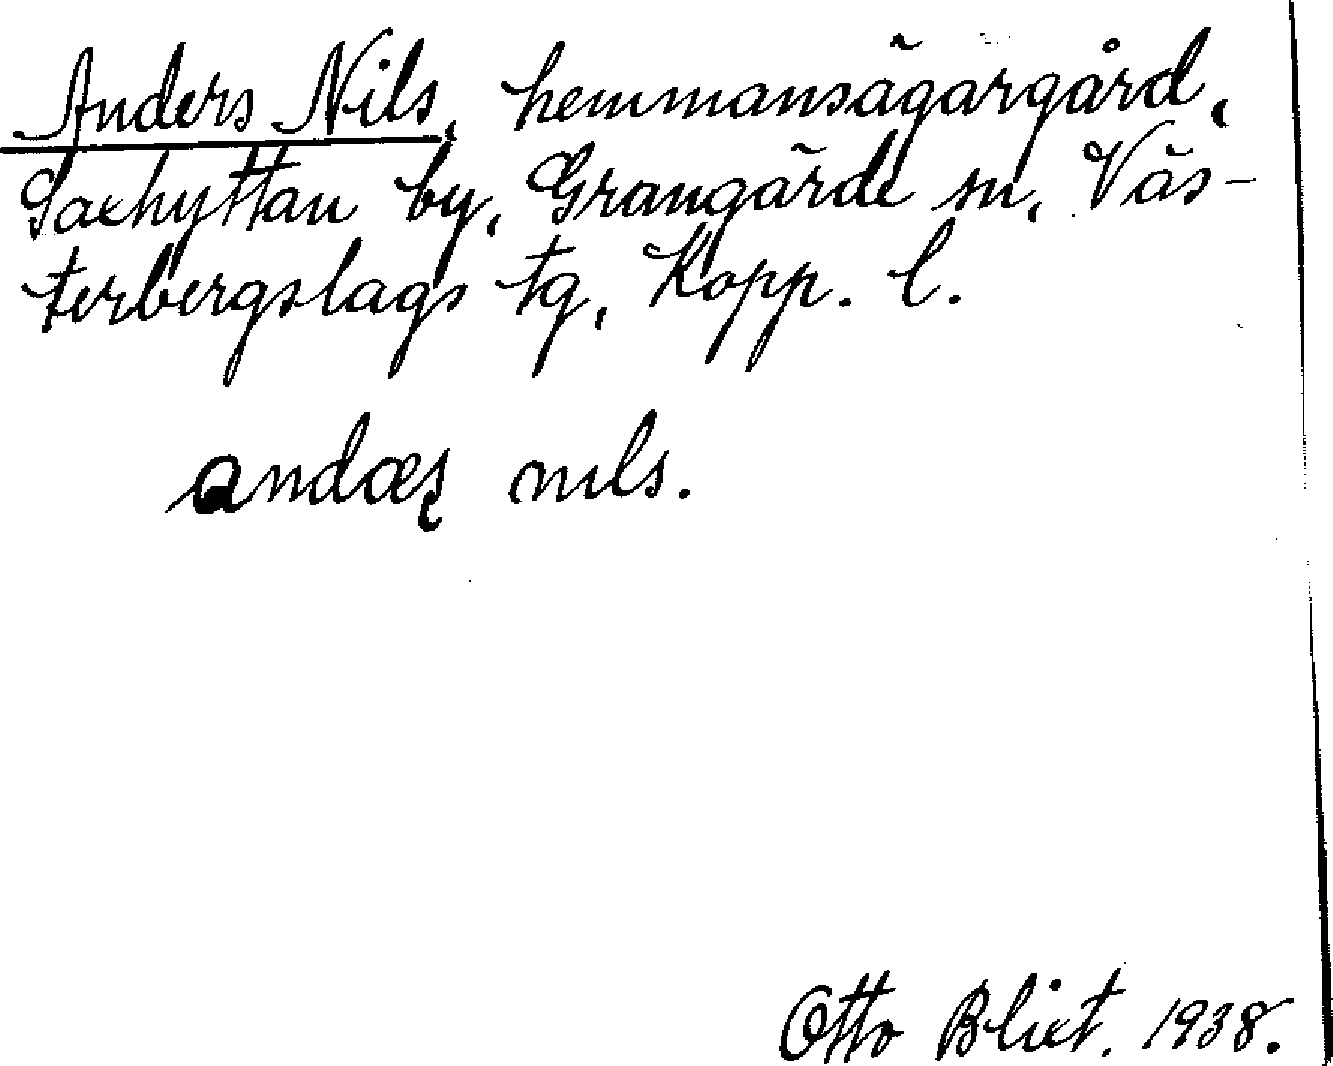 Anders Nils, hemmansägargård,
Saxhyttan by, Grangärde sn, Väs-
terbergslags tg, Kopp. l.
andæʂ nils.
Otto Blixt. 1938.